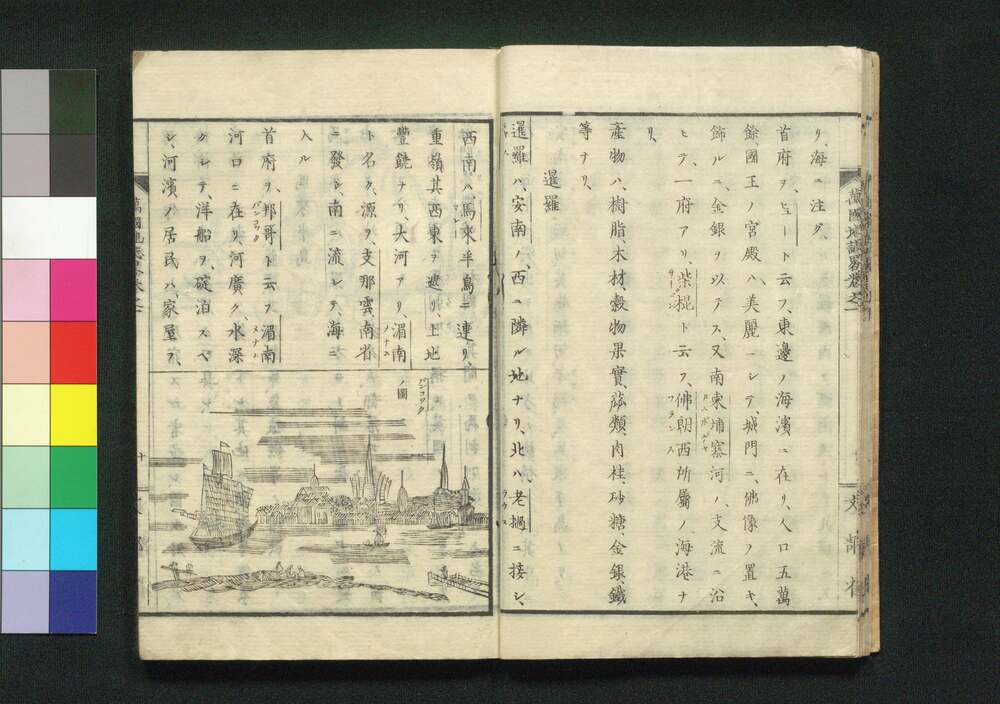 萬國地誌畧卷之一
リ、海ニ注グ、
首府ヲ、ヒュート云フ、東邊ノ海濱ニ在リ、人口五萬
餘、國王ノ宮殿ハ、美麗ニシテ、城門ニ、佛像ノ置キ、
飾ルニ、金銀ヲ以テス、又南東埔寨河ノ、支流ニ沿
ヒテ、一府アリ、柴棍ト云フ、佛朗西所屬ノ海港ナ
リ、
產物ハ、樹脂、木材、穀物果實、蔬類、肉桂、砂糖、金銀、鐵
等ナリ、
暹羅
暹羅ハ、安南ノ西ニ隣ル地ナリ、北ハ、老撾ニ接シ、
西南ハ、馬來半島ニ連リ、
重嶺其西東ヲ遮リ、土地
豐饒ナリ、大河アリ、湄南
ト名ク、源ヲ、支那雲南省
ニ發シ、南ニ流レテ、海ニ
入ル
首府ヲ、邦哥ト云フ、湄南
河口ニ在リ、河廣ク、水深
クシテ、洋船ヲ、碇泊スベ
シ、河濱ノ居民ハ、家屋ヲ、
バンコック
ノ圖